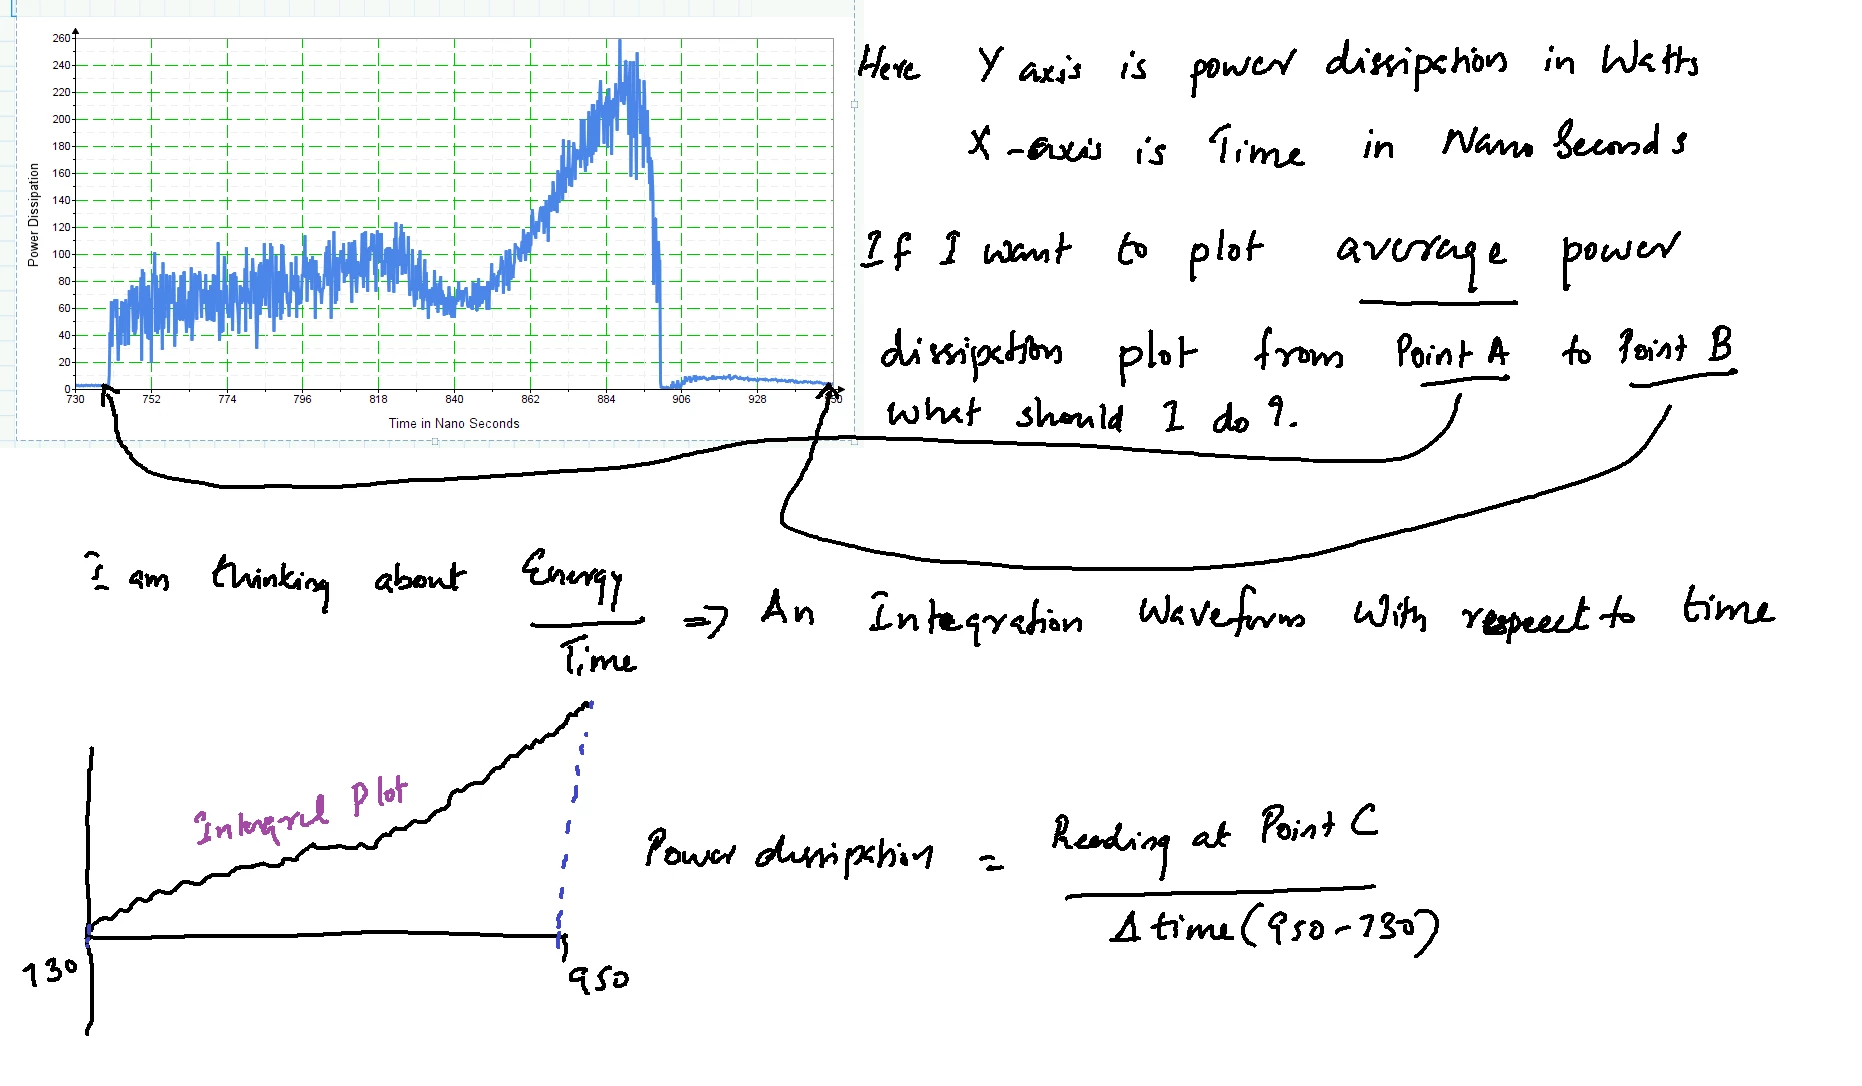 260
240
220
200
180
160
140
120
100
80
60
40
20
0
Power Dissipation
730 752 774 796 818 840 862 884 906 928
Time in Nano Seconds
Here Y axis is power dissipation in Watts
X-axis is Time in Nano Seconds
If I want to plot average power
dissipation plot from Point A to Point B
what should I do ?.
I am thinking about Energy
Time
=> An Integration Waveform with respect to time
Integral Plot
130
950
Power dissipation = Reading at Point C
Δ time (950-730)